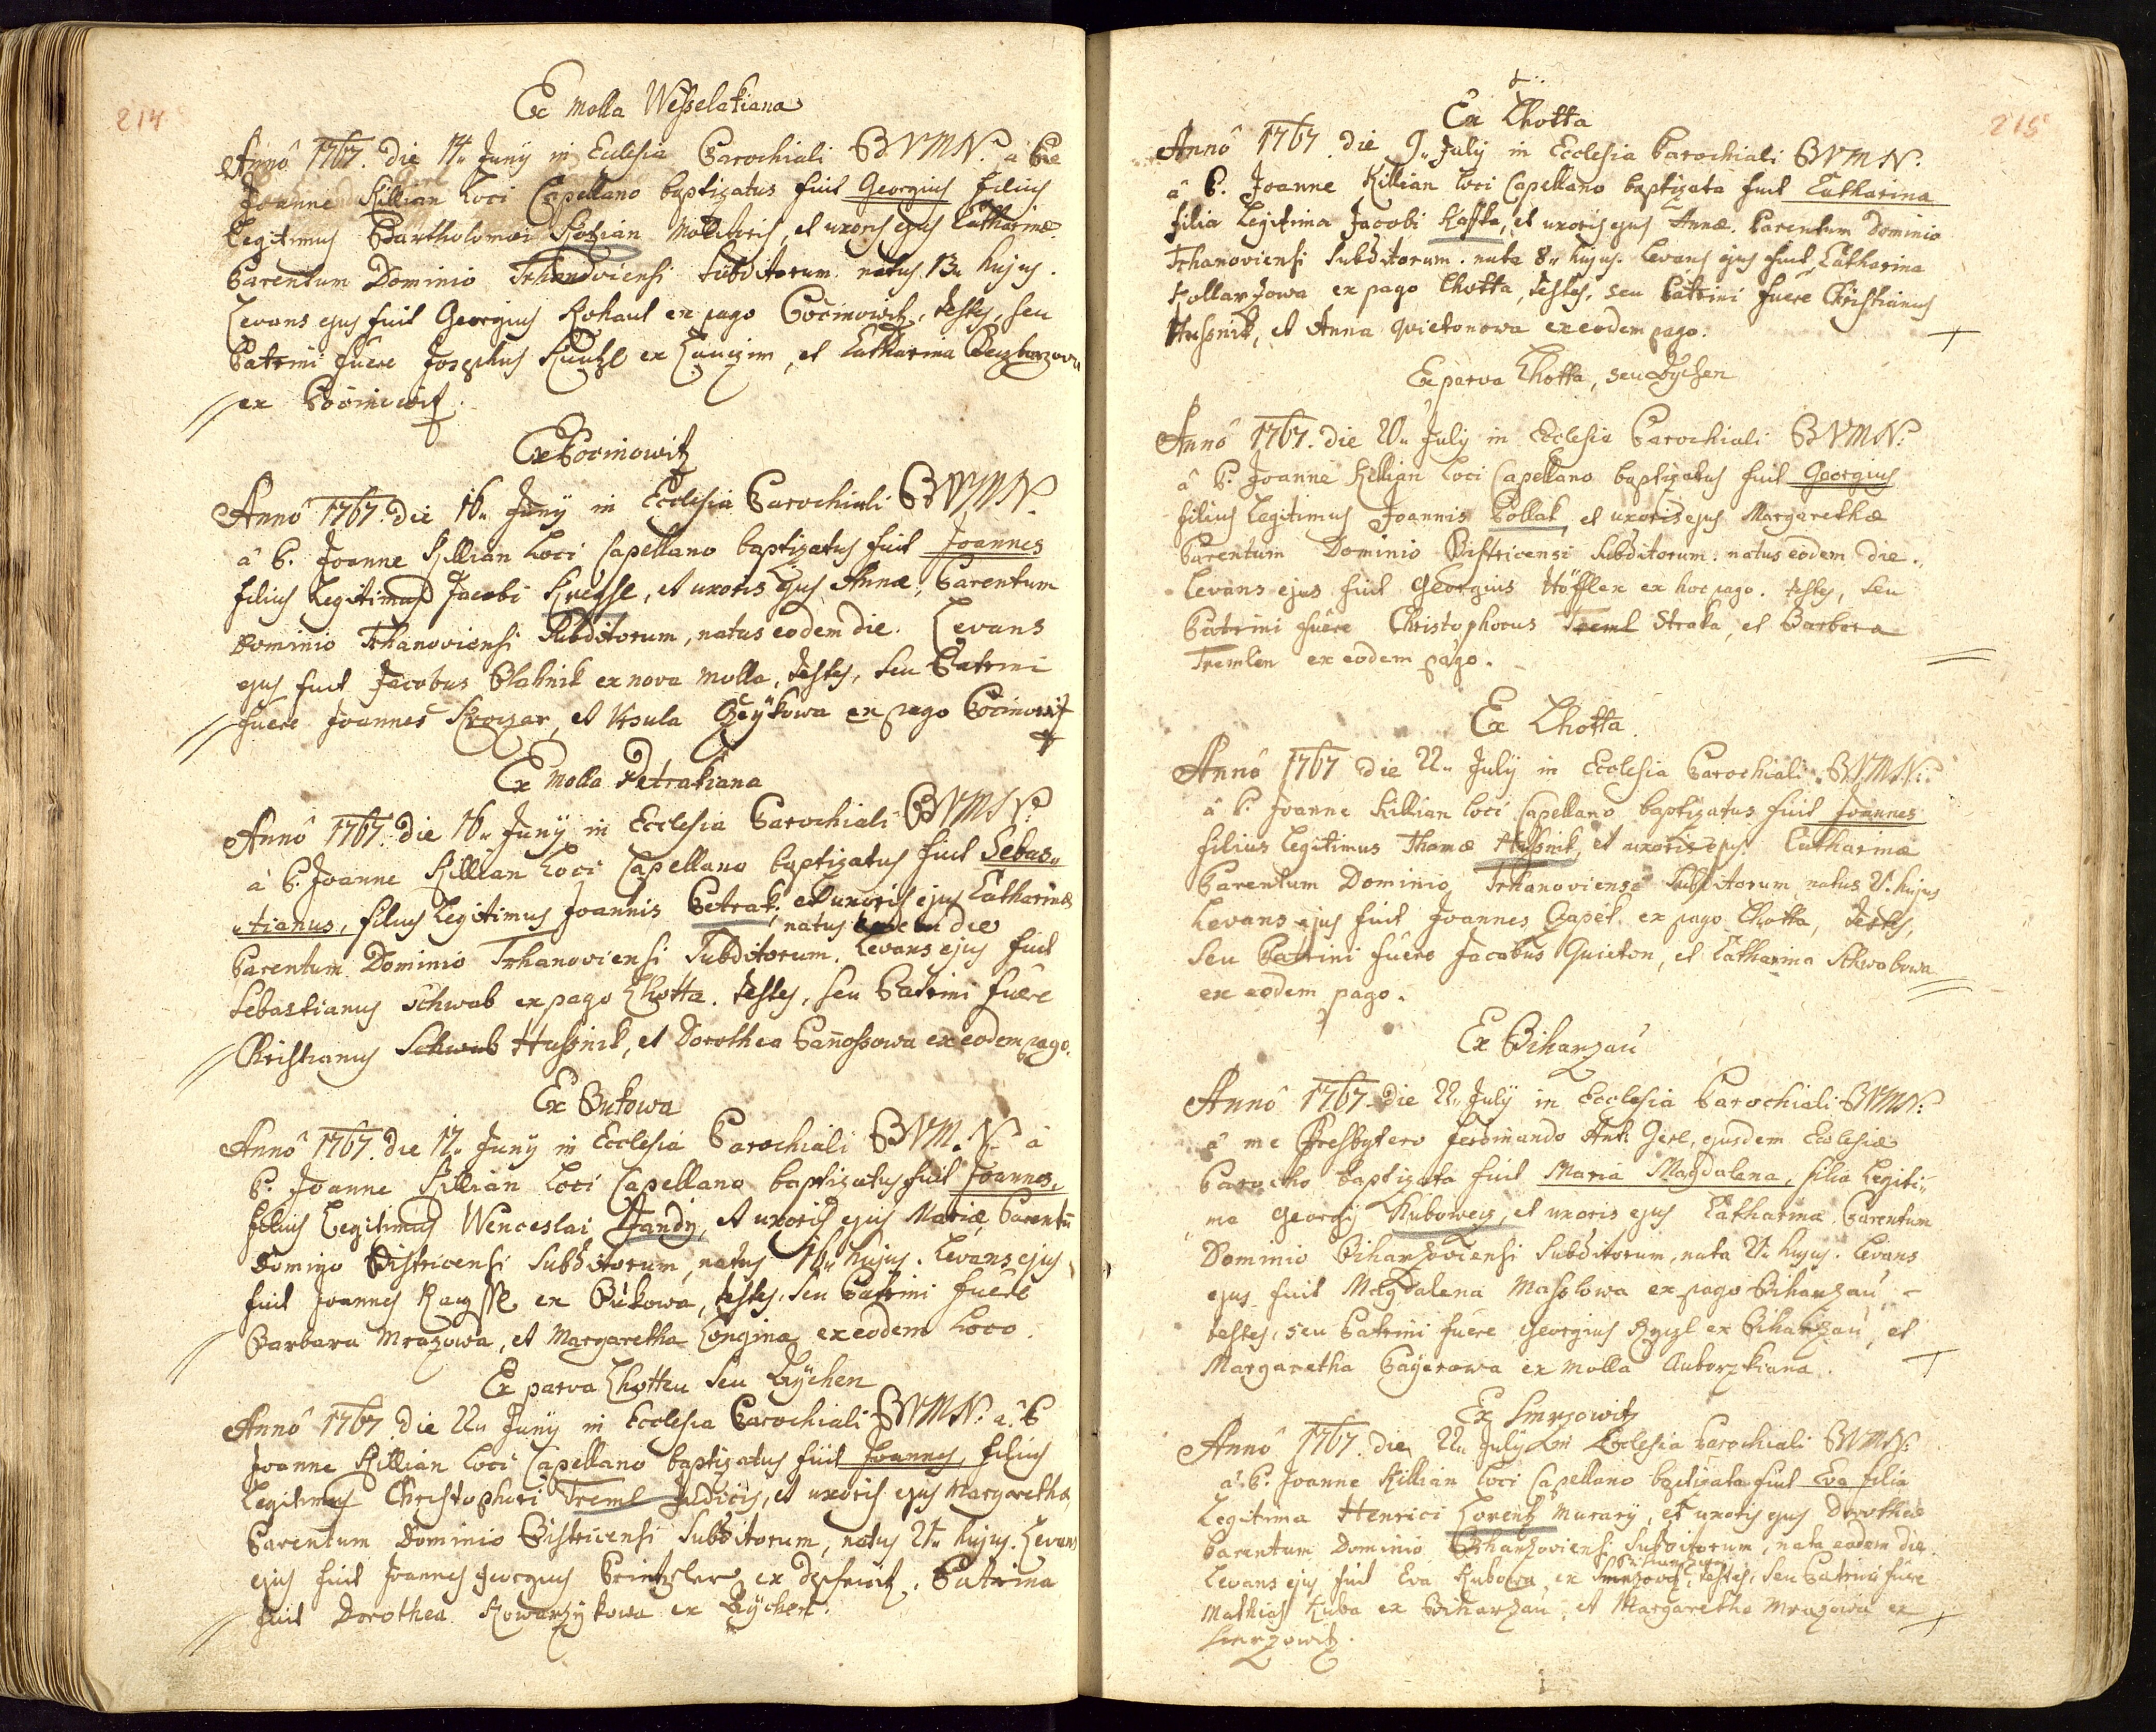 214
Ex Molla Wesselakiana
Annô 1767. die 14. Junÿ in Ecclesia Parochiali BVMN. â Pre
Joanne Killian Loci Capellano baptizatus fuit Georgius filius
Legitimus Bartholomæi Kotzian Molitoris, et uxoris ejus Catharinæ
Parentum Dominio Trhanoviensi Subditorum. natus 13. hujus.
Levans ejus fuit Georgius Kohaut ex pago Pocinowitz, testes, seu
Patrini fuêre Josephus ex et Catharina
ex Pocinowitz.
Ex Pocinowitz
Annô 1767. die 16. Junÿ in Ecclesia Parochiali BVMN.
â P. Joanne Killian Loci Capellano baptizatus fuit Joannes
filius Legitimus Jacobi et uxoris ejus Annæ, Parentum
Dominio Trhanoviensi Subditorum, natus eodem die. Levans
ejus fuit Jacobus Blahnik ex nova Molla, testes, seu Patrini
fuêre Joannes et Ursula ex pago Pocinowitz
Ex Molla Petrakiana
Annô 1767. die 16. Junÿ in Ecclesia Parochiali BVMN.
â P. Joanne Killian Loci Capellano baptizatus fuit Sebas„
„tianus, filius Legitimus Joannis Petrak, et uxoris ejus Catharinæ
natus eodem die
Parentum Dominio Trhanoviensi Subditorum. Levans ejus fuit
Sebastianus Schwab ex pago Lhotta. testes, seu Patrini fuêre
Christianus Schwab Hussnik, et Dorothea ex eodem pago.
Ex Bukowa
Annô 1767. die 17. Junÿ in Ecclesia Parochiali BVMN. â
P. Joanne Killian Loci Capellano baptizatus fuit Joannes,
filius Legitimus Wenceslai Jandy, et uxoris ejus Mariæ, Parentū
Dominio Bistricensi Subditorum, natus 16. hujus. Levans ejus
fuit Joannes ex Bukowa, testes, seu Patrini fuêre
Barbara Mrazowa, et Margaretha Longina ex eodem Loco.
Ex parva Lhotten seu Bÿchen
Annô 1767. die 22. Junÿ in Ecclesia Parochiali BVMN. â P.
Joanne Killian Loci Capellano baptizatus fuit Joannes, filius
Legitimus Christophori Treml Judicis, et uxoris ejus Margaretha
Parentum Dominio Bistricensi Subditorum, natus 21. hujus. Levans
ejus fuit Joannes Georgius ex Patrina
fuit Dorothea ex Bÿchen.
215
Ex Lhotta
Annô 1767. die 9. Julÿ in Ecclesia Parochiali BVMN.
â P. Joanne Killian Loci Capellano baptizata fuit Catharina
filia Legitima Jacobi Kaffka, et uxoris ejus Annæ. Parentum Dominio
Trhanoviensi Subditorum. nata 8. hujus. Levans ejus fuit Catharina
Kollarzowa ex pago Lhotta, testes, seu Patrini fuêre Christianus
Hussnik, et Anna Quietonowa ex eodem pago.
Ex parva Lhotta, seu Bÿchen
Annô 1767. die 20. Julÿ in Ecclesia Parochiali BVMN.
â P. Joanne Killian Loci Capellano baptizatus fuit Georgius
filius Legitimus Joannis Pollak, et uxoris ejus Margarethæ
Parentum Dominio Bistricensi Subditorum. natus eodem die.
Levans ejus fuit Georgius Höffler ex hoc pago. testes, seu
Patrini fuêre Christophorus Treml Straka, et Barbara
Tremlen ex eodem pago.
Ex Lhotta.
Annô 1767 die 22. Julÿ in Ecclesia Parochiali BVMN.
â P. Joanne Killian Loci Capellano baptizatus fuit Joannes
filius Legitimus Thomæ Hussnik, et uxoris ejus Catharinæ
Parentum Dominio Trhanoviensi Subditorum natus 21. hujus
Levans ejus fuit Joannes ex pago Lhotta, testes,
seu Patrini fuêre Jacobus Quieton, et Catharina Schwabowa
ex eodem pago.
Ex Biharzau
Annô 1767. die 22. Julÿ in Ecclesia Parochiali BVMN.
â me Presbytero Ferdinando Ant. Gerl, ejusdem Ecclesiæ
Parocho baptizata fuit Maria Magdalena, filia Legiti„
„ma Georgÿ Kuboweg, et uxoris ejus Catharinæ Parentum
Dominio Biharzoviensi Subditorum, nata 21. hujus. Levans
ejus fuit Magdalena Masslowa ex pago Biharzau
testes, seu Patrini fuêre Georgius ex Biharzau, et
Margaretha Baÿerowa ex Molla Auborzkiana.
Ex Smrzowitz
Annô 1767. die 22. Julÿ in Ecclesia Parochiali BVMN.
â P. Joanne Killian Loci Capellano baptizata fuit Eva filia
Legitima Henrici Lorentz Murarÿ, et uxoris ejus Dorotheæ
Parentum Dominio Biharzoviensi Subditorum, nata eodem die
Biharzau
Levans ejus fuit Eva Kubowa ex Smrzowitz, testes, seu Patrini fuêre
Mathias Kuba ex Biharzau, et Margaretha Mrazowa ex
Smrzowitz.